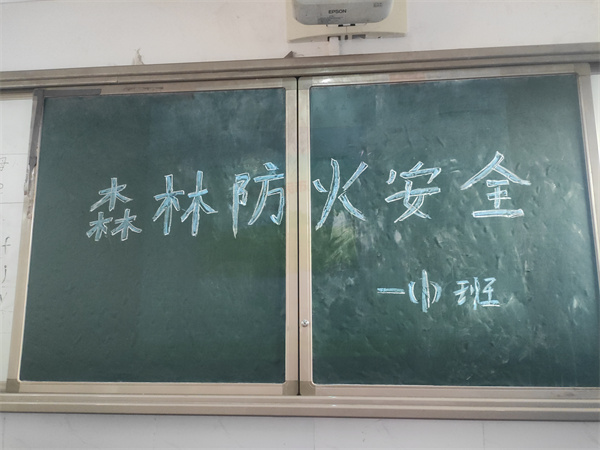 EPSON
森林防火安全
一(1)班